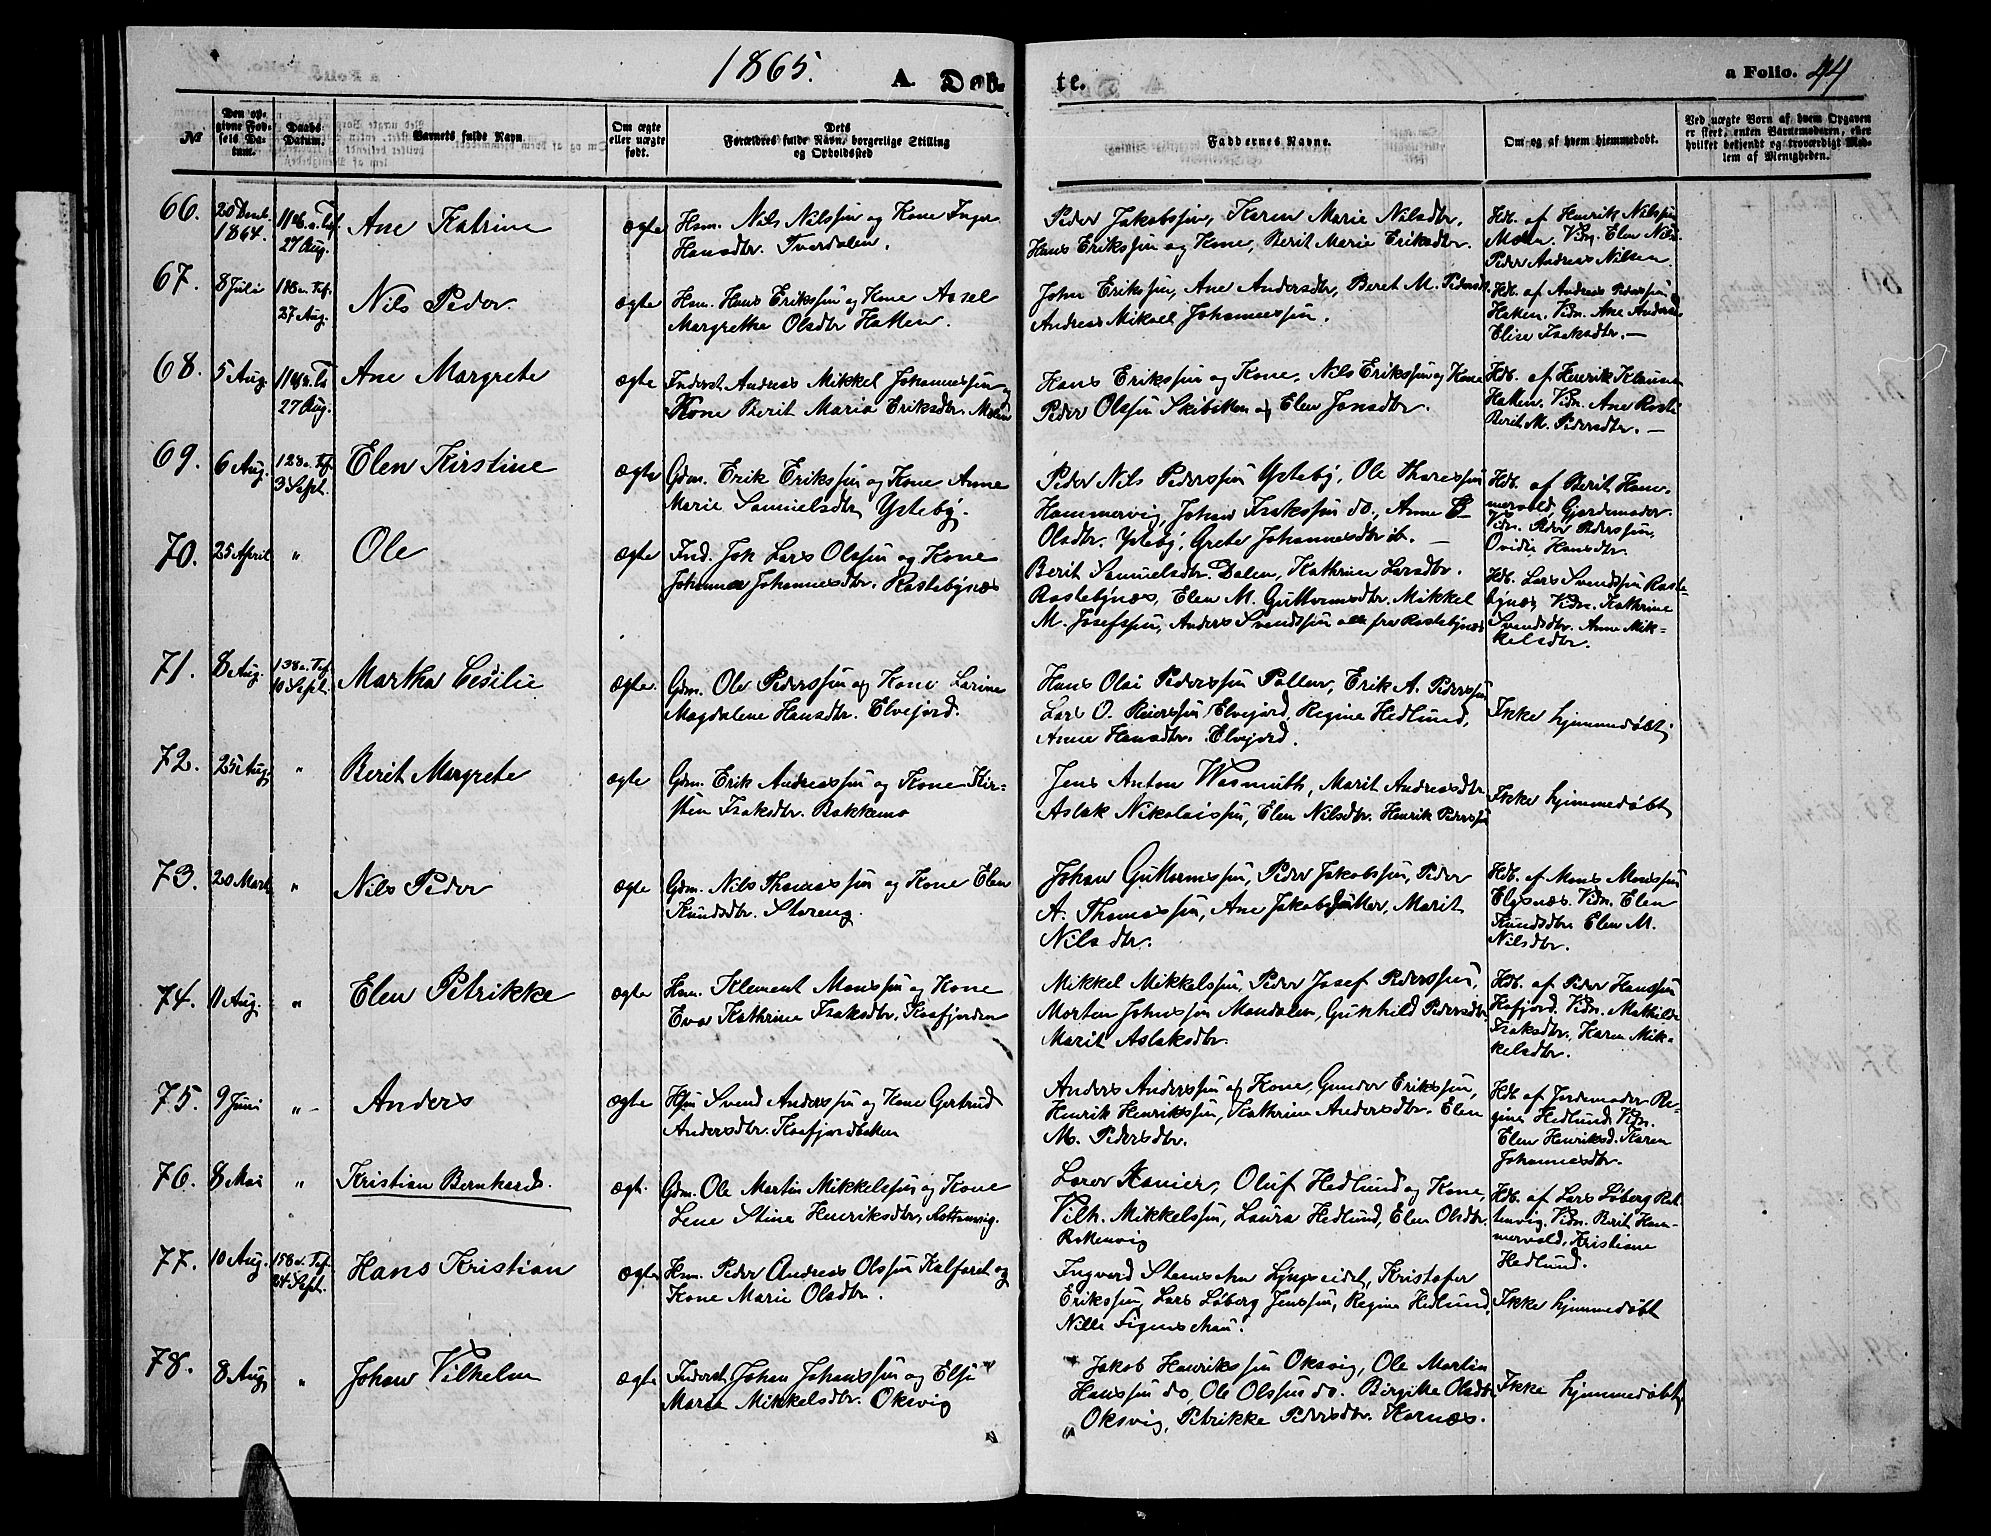 1865.
A. Døb-
te.
a Folio. 44
№
Den op-
givne Fød-
sels Da-
tum.
Daabs-
Datum.
Barnets fulde Navn.
Om ægte
eller uægte
født.
Dets
Forældres fulde Navn, borgerlige Stilling
og Opholdssted
Faddernes Navne.
Om og af hvem hjemmedøbt.
Ved uægte Børn af hvem Opgaven
er skeet, enten Barnemoderen, eller
hvilket bekjendt og troværdigt Med-
lem af Menigheden.
66.
20 Decbr.
1864.
11te s. e. Tref.
27 Aug.
Ane Katrine
ægte
Hsm. Nils Nilssøn og Kone Inger
Hansdtr. Tverdalen.
Peder Jakobssøn, Karen Marie Nilsdtr,
Hans Erikssøn og Kone, Berit Marie Eriksdtr.
Hdb. af Henrik Nilssøn
Moen. Vidn. Elen Nils
Peder Andreas Nilsen
67.
8 Juli
27 Aug.
Nils Peder
ægte
Hsm. Hans Erikssøn og Kone Assel
Margrethe Olsdtr Hatten.
John Erikssøn, Ane Andersdtr, Beret M. Pedersdt.
Andreas Mikael Johannessøn.
Hdb. af Andreas Pederssøn
Hatten. Vidn. Ane Andersd
Elise Isaksdtr. —
68.
5 Aug.
27 Aug.
Ane Margrete
ægte
Inderst Andreas Mikkel Johannessøn og
Kone Berit Maria Eriksdtr. Molen
Hans Erikssøn og Kone, Nils Erikssøn og Kone
Peder Olssøn Skibotten og Elen Jonsdtr.
Hdb. af Henrik
Hatten. Vidn. Ane
Berit M. Pedersdtr. —
69.
6 Aug.
12 s. e. Tref.
3 Sept.
Elen Kirstine
ægte
Gdm. Erik Erikssøn og Kone Anne
Marie Samuelsdtr, Ysteby.
Peder Nils Pederssøn Ysteby, Ole Tharessøn
Hammervig, Johan Isakssøn do., Anne B
Olsdtr. Ysteby, Grete Johannesdtr ib. —
Hdb. af Berit Ham-
mervold, Gjordemoder.
Vidn. Peder Pederssøn,
Ovidia Hansdtr.
70.
25 April
"
Ole
ægte
Ind. Joh Lars Olssøn og Kone
Johanna Johannesdtr. Rastebynæs
Berit Samuelsdtr. Dalen, Kathrine Larsdtr.
Rastebynæs, Elen M. Guttormsdtr. Mikkel
M. Josefssøn, Anders Svendssøn alle fra Rastebynæs
Hdb. Lars Svendssøn Raste-
bynæs Vidn. Kathrine
Svendsdtr. Anne Mik-
kelsdtr.
71.
8 Aug.
13 s. e. Tref.
10 Sept.
Martha Cesilie
ægte.
Gdm. Ole Pederssøn og Kone Larine
Magdalene Hansdtr. Elvejord.
Hans Olai Pederssøn Pollen, Erik A. Pederssøn
Lars O. Reierssøn Elvejord, Regine Hedlund,
Anne Hansdtr. Elvejord.
Ikke hjemmedøbt
72.
25 Aug.
"
Berit Margrete
ægte
Gdm. Erik Andreassøn og Kone Kir-
sten Isaksdtr. Bakkemo
Jens Anton Wasmuth, Marit Andreasdtr
Aslak Nikolaissøn, Elen Nilsdtr. Henrik Pederssøn
Ikke hjemmedøbt
73.
20 Marts
"
Nils Peder
ægte
Gdm. Nils Thomassøn og Kone Elen
Knudsdtr. Storeng
Johan Guttormssøn, Peder Jakobssøn, Peder
A. Thomassøn, Ane Jakobsdatter, Marit
Nilsdtr.
Hdb. af Mons Monssøn
Elgsnæs. Vidn. Elen
Knudsdtr. Elen M.
Nilsdtr.
74.
11 Aug.
"
Elen Petrikke
ægte
Hsm. Klement Monssøn og Kone
Eva Kathrine Isaksdtr. Kaafjorden
Mikkel Mikkelssøn, Peder Josef Pederssøn,
Morten Johnssøn Mandalen, Gunhild Pedersdtr.
Marit Aslaksdtr.
Hdb. af Peder Hanssøn
Kofjord. Vidn. Mathilde
Isaksdtr. Karen Mik-
kelsdtr.
75.
9 Juni
"
Anders
ægte
Hsm Svend Anderssøn og Kone Gertrud
Andersdtr. Kaafjordbotten
Anders Anderssøn og Kone, Gunder Erikssøn,
Henrik Henrikssøn, Kathrine Andersdtr. Elen
M. Pedersdtr.
Hdb. af Jordemoder Re-
gine Hedlund. Vidn.
Elen Henriksd. Karen
Johannesdtr.
76.
8 Mai
"
Kristian Bernhard.
ægte.
Gdm. Ole Martin Mikkelssøn og Kone
Lene Stine Henriksdtr, Rottenvig.
Oluf Hedlund og Kone,
Vilh. Mikkelssøn, Laura Hedlund, Elen Olsdtr.
Rotenvig
Hdb. af Lars Løberg Rot-
tenvig. Vidn. Berit Ham-
mervold, Kristiane
Hedlund.
77.
10 Aug.
15 s. e. Tref.
24 Sept.
Hans Kristian
ægte
Hsm. Peder Andreas Olssøn Kalfaret og
Kone Marie Olsdtr.
Lyngseidet, Kristofer
Erikssøn, Lars Løberg Jenssøn, Regine Hedlund
Nille Figenschau.
Ikke hjemmedøbt
78.
8 Aug.
"
Johan Vilhelm
ægte
Inderst Johan Johanssøn og Elsi
Maria Mikkelsdtr. Oksvig
Jakob Henrikssøn Oksvig, Ole Martin
Hanssøn do, Ole Olssøn do. Birgitte Olsdtr.
Oksvig, Petrikke Pedersdtr. Hornæs.
Ikke hjemmedøbt